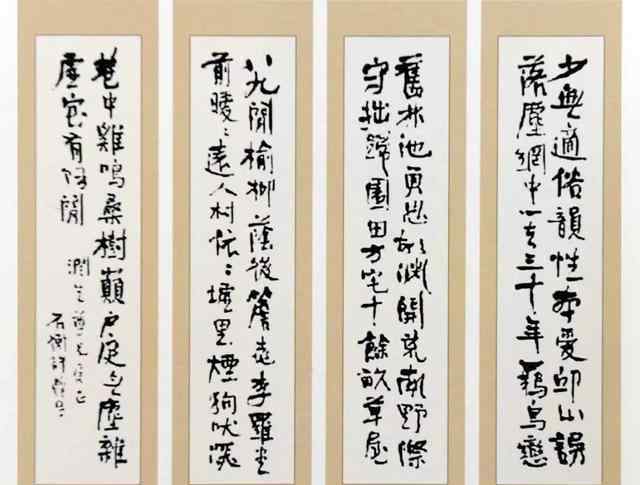 少無適俗韻性本愛邱山誤
落塵網中一去三十年羈鳥戀
舊林池魚思故淵開荒南野際
守拙歸園田方宅十餘畝草屋
八九間榆柳蔭後簷桃李羅堂
前曖〻遠人村依〻墟里煙狗吠深
巷中雞鳴桑樹顛戶庭無塵雜
虛室有餘閒